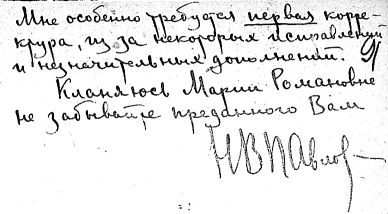 Мне особенно требуется первая корре-
ктура, из за некоторых исправлений
и незначительных дополнений.
Кланяюсь Марии Романовне
не забывайте преданного Вам
НВПавлов